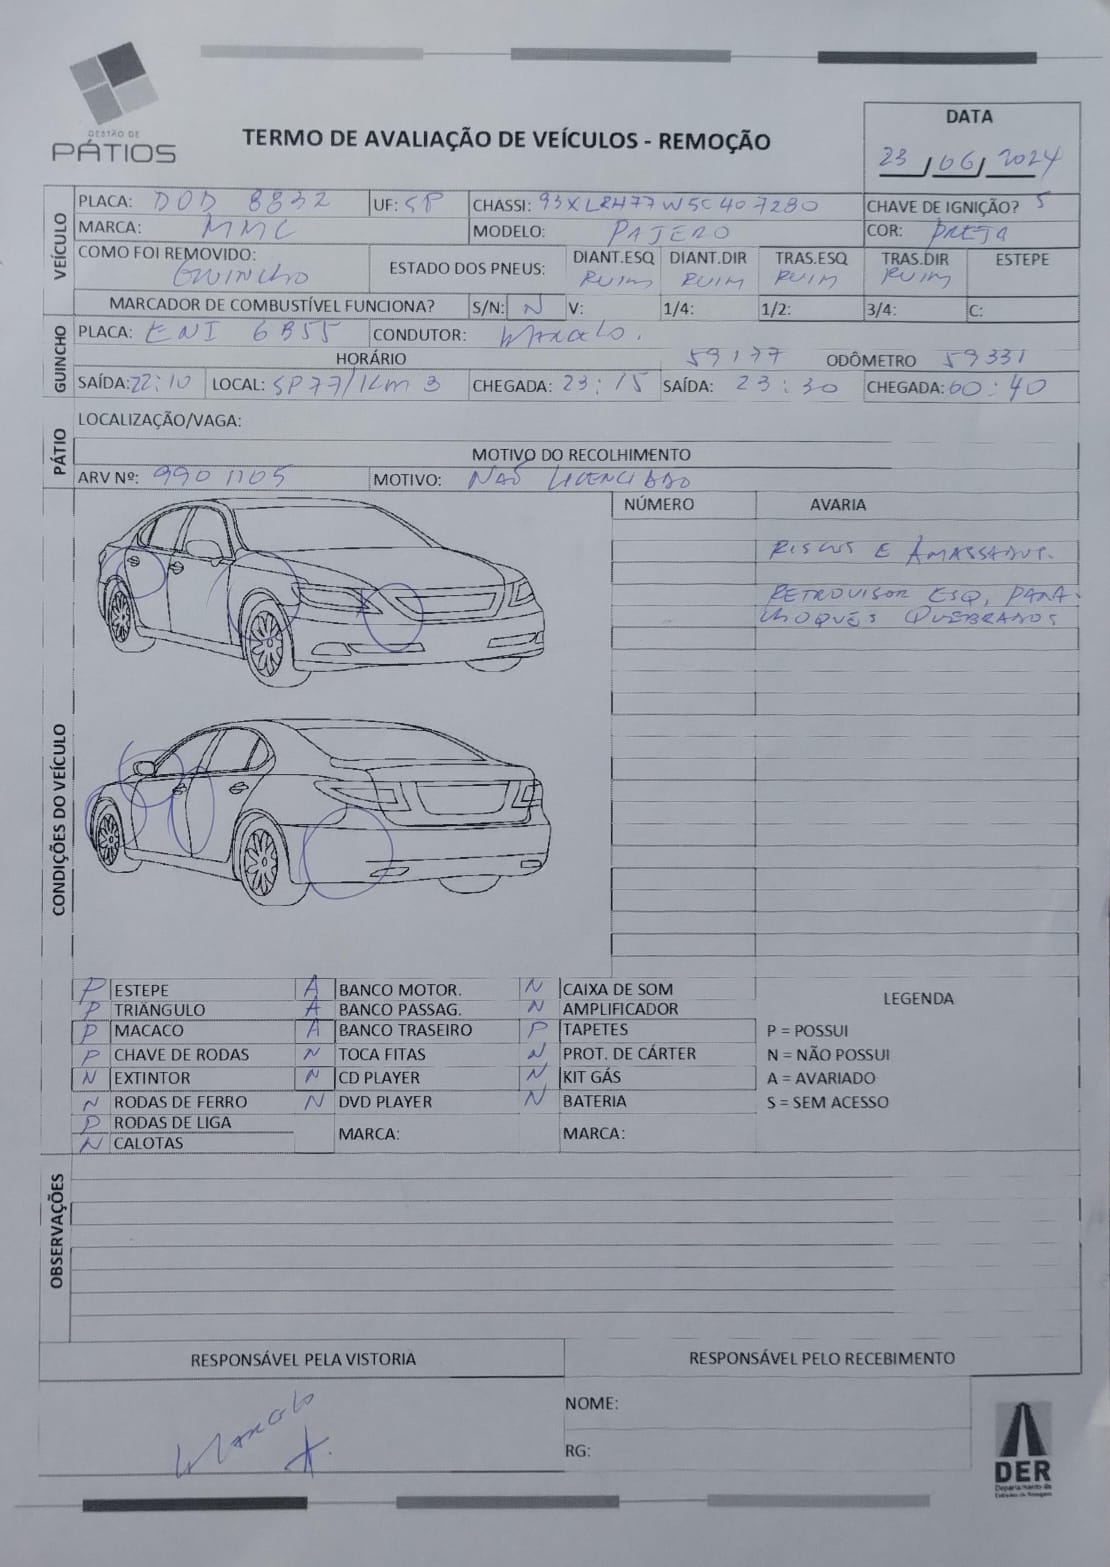 GESTÃO DE
PÁTIOS
TERMO DE AVALIAÇÃO DE VEÍCULOS - REMOÇÃO
DATA
23/06/2024
VEÍCULO
PLACA: DOD 8832 UF: SP CHASSI: 93XLRH77W5C407280 CHAVE DE IGNIÇÃO? S
MARCA: MMC MODELO: PAJERO COR: PRETA
COMO FOI REMOVIDO: GUINCHO ESTADO DOS PNEUS: DIANT.ESQ RUIM DIANT.DIR RUIM TRAS.ESQ RUIM TRAS.DIR RUIM ESTEPE
MARCADOR DE COMBUSTÍVEL FUNCIONA? S/N: N V: 1/4: 1/2: 3/4: C:
GUINCHO
PLACA: ENI 6B55 CONDUTOR: MARCELO.
HORÁRIO 59177 ODÔMETRO 59331
SAÍDA: 22:10 LOCAL: SP77/KM 3 CHEGADA: 23:15 SAÍDA: 23:30 CHEGADA: 00:40
PÁTIO
LOCALIZAÇÃO/VAGA:
MOTIVO DO RECOLHIMENTO
ARV Nº: 9901105 MOTIVO: NAO LICENCIADO
CONDIÇÕES DO VEÍCULO
NÚMERO AVARIA
RISCOS E AMASSADOS.
RETROVISOR ESQ, PARA
CHOQUES QUEBRADOS
P ESTEPE A BANCO MOTOR. N CAIXA DE SOM
P TRIÂNGULO A BANCO PASSAG. N AMPLIFICADOR
P MACACO A BANCO TRASEIRO P TAPETES
P CHAVE DE RODAS N TOCA FITAS N PROT. DE CÁRTER
N EXTINTOR N CD PLAYER N KIT GÁS
N RODAS DE FERRO N DVD PLAYER N BATERIA
P RODAS DE LIGA MARCA: MARCA:
N CALOTAS
LEGENDA
P = POSSUI
N = NÃO POSSUI
A = AVARIADO
S = SEM ACESSO
OBSERVAÇÕES
RESPONSÁVEL PELA VISTORIA RESPONSÁVEL PELO RECEBIMENTO
Marcelo
NOME:
RG:
DER
Departamento de
Estradas de Rodagem